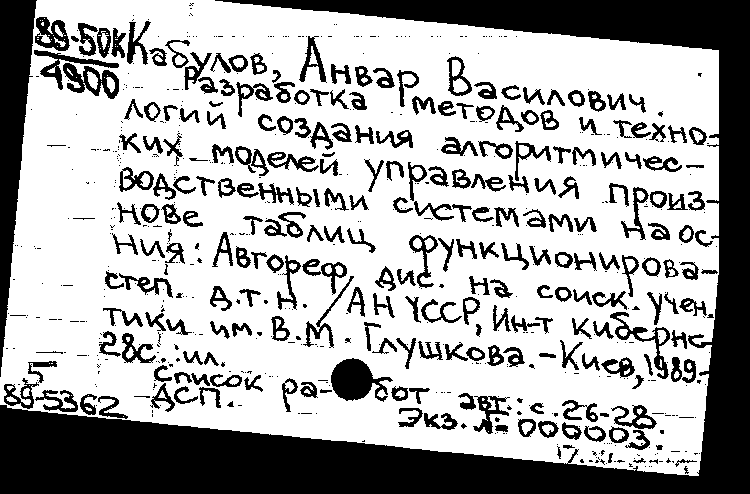 89-50к
4900
Кабулов, Анвар Василович.
Разработка методов и техно-
логий создания алгоритмичес-
ких моделей управления произ-
водственными системами на ос-
нове таблиц функционирова-
ния: Автореф. дис. на соиск. учен.
степ. д.т.н. / АН УССР, Ин-т киберне-
тики им. В.М. Глушкова. - Киев, 1989.-
28с.: ил.
Список работ авт.: с. 26-28
ДСП. Экз. № 000003:
5
89-5362